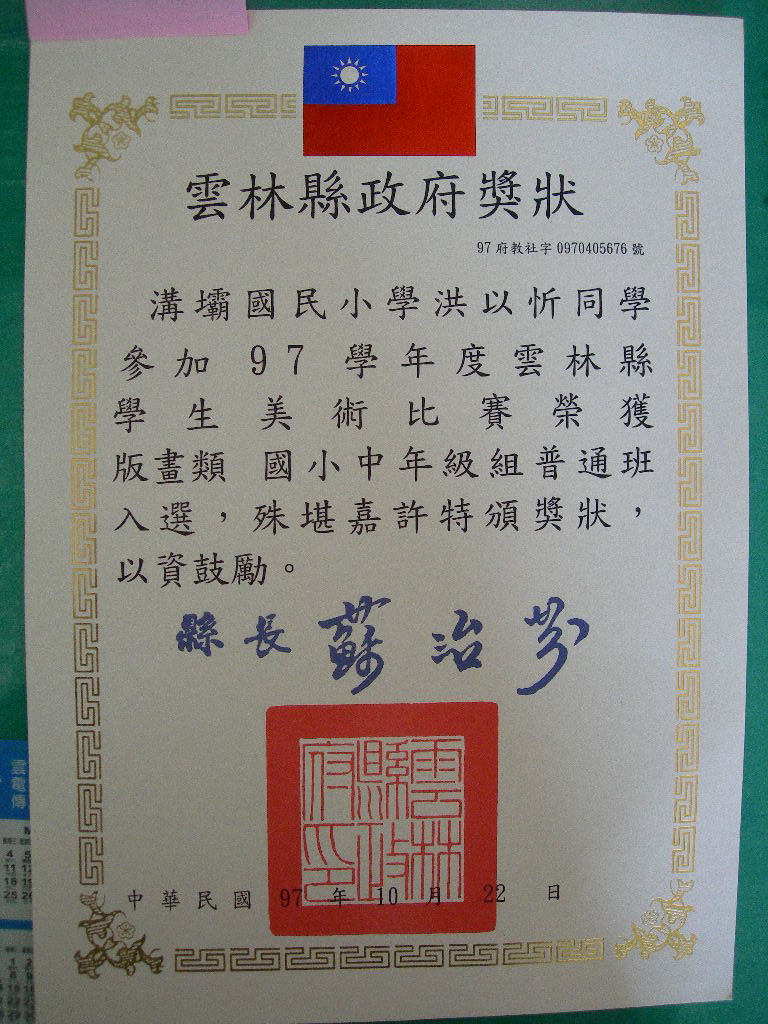 雲林縣政府獎狀
97府教社字0970405676號
溝壩國民小學洪以忻同學
參加 97 學年度雲林縣
學生美術比賽榮獲
版畫類 國小中年級組普通班
入選，殊堪嘉許特頒獎狀，
以資鼓勵。
縣長 蘇治芬
雲林縣政府印
中華民國 97 年 10 月 22 日
雲電傳
4 5
11 12
18 19
25 26